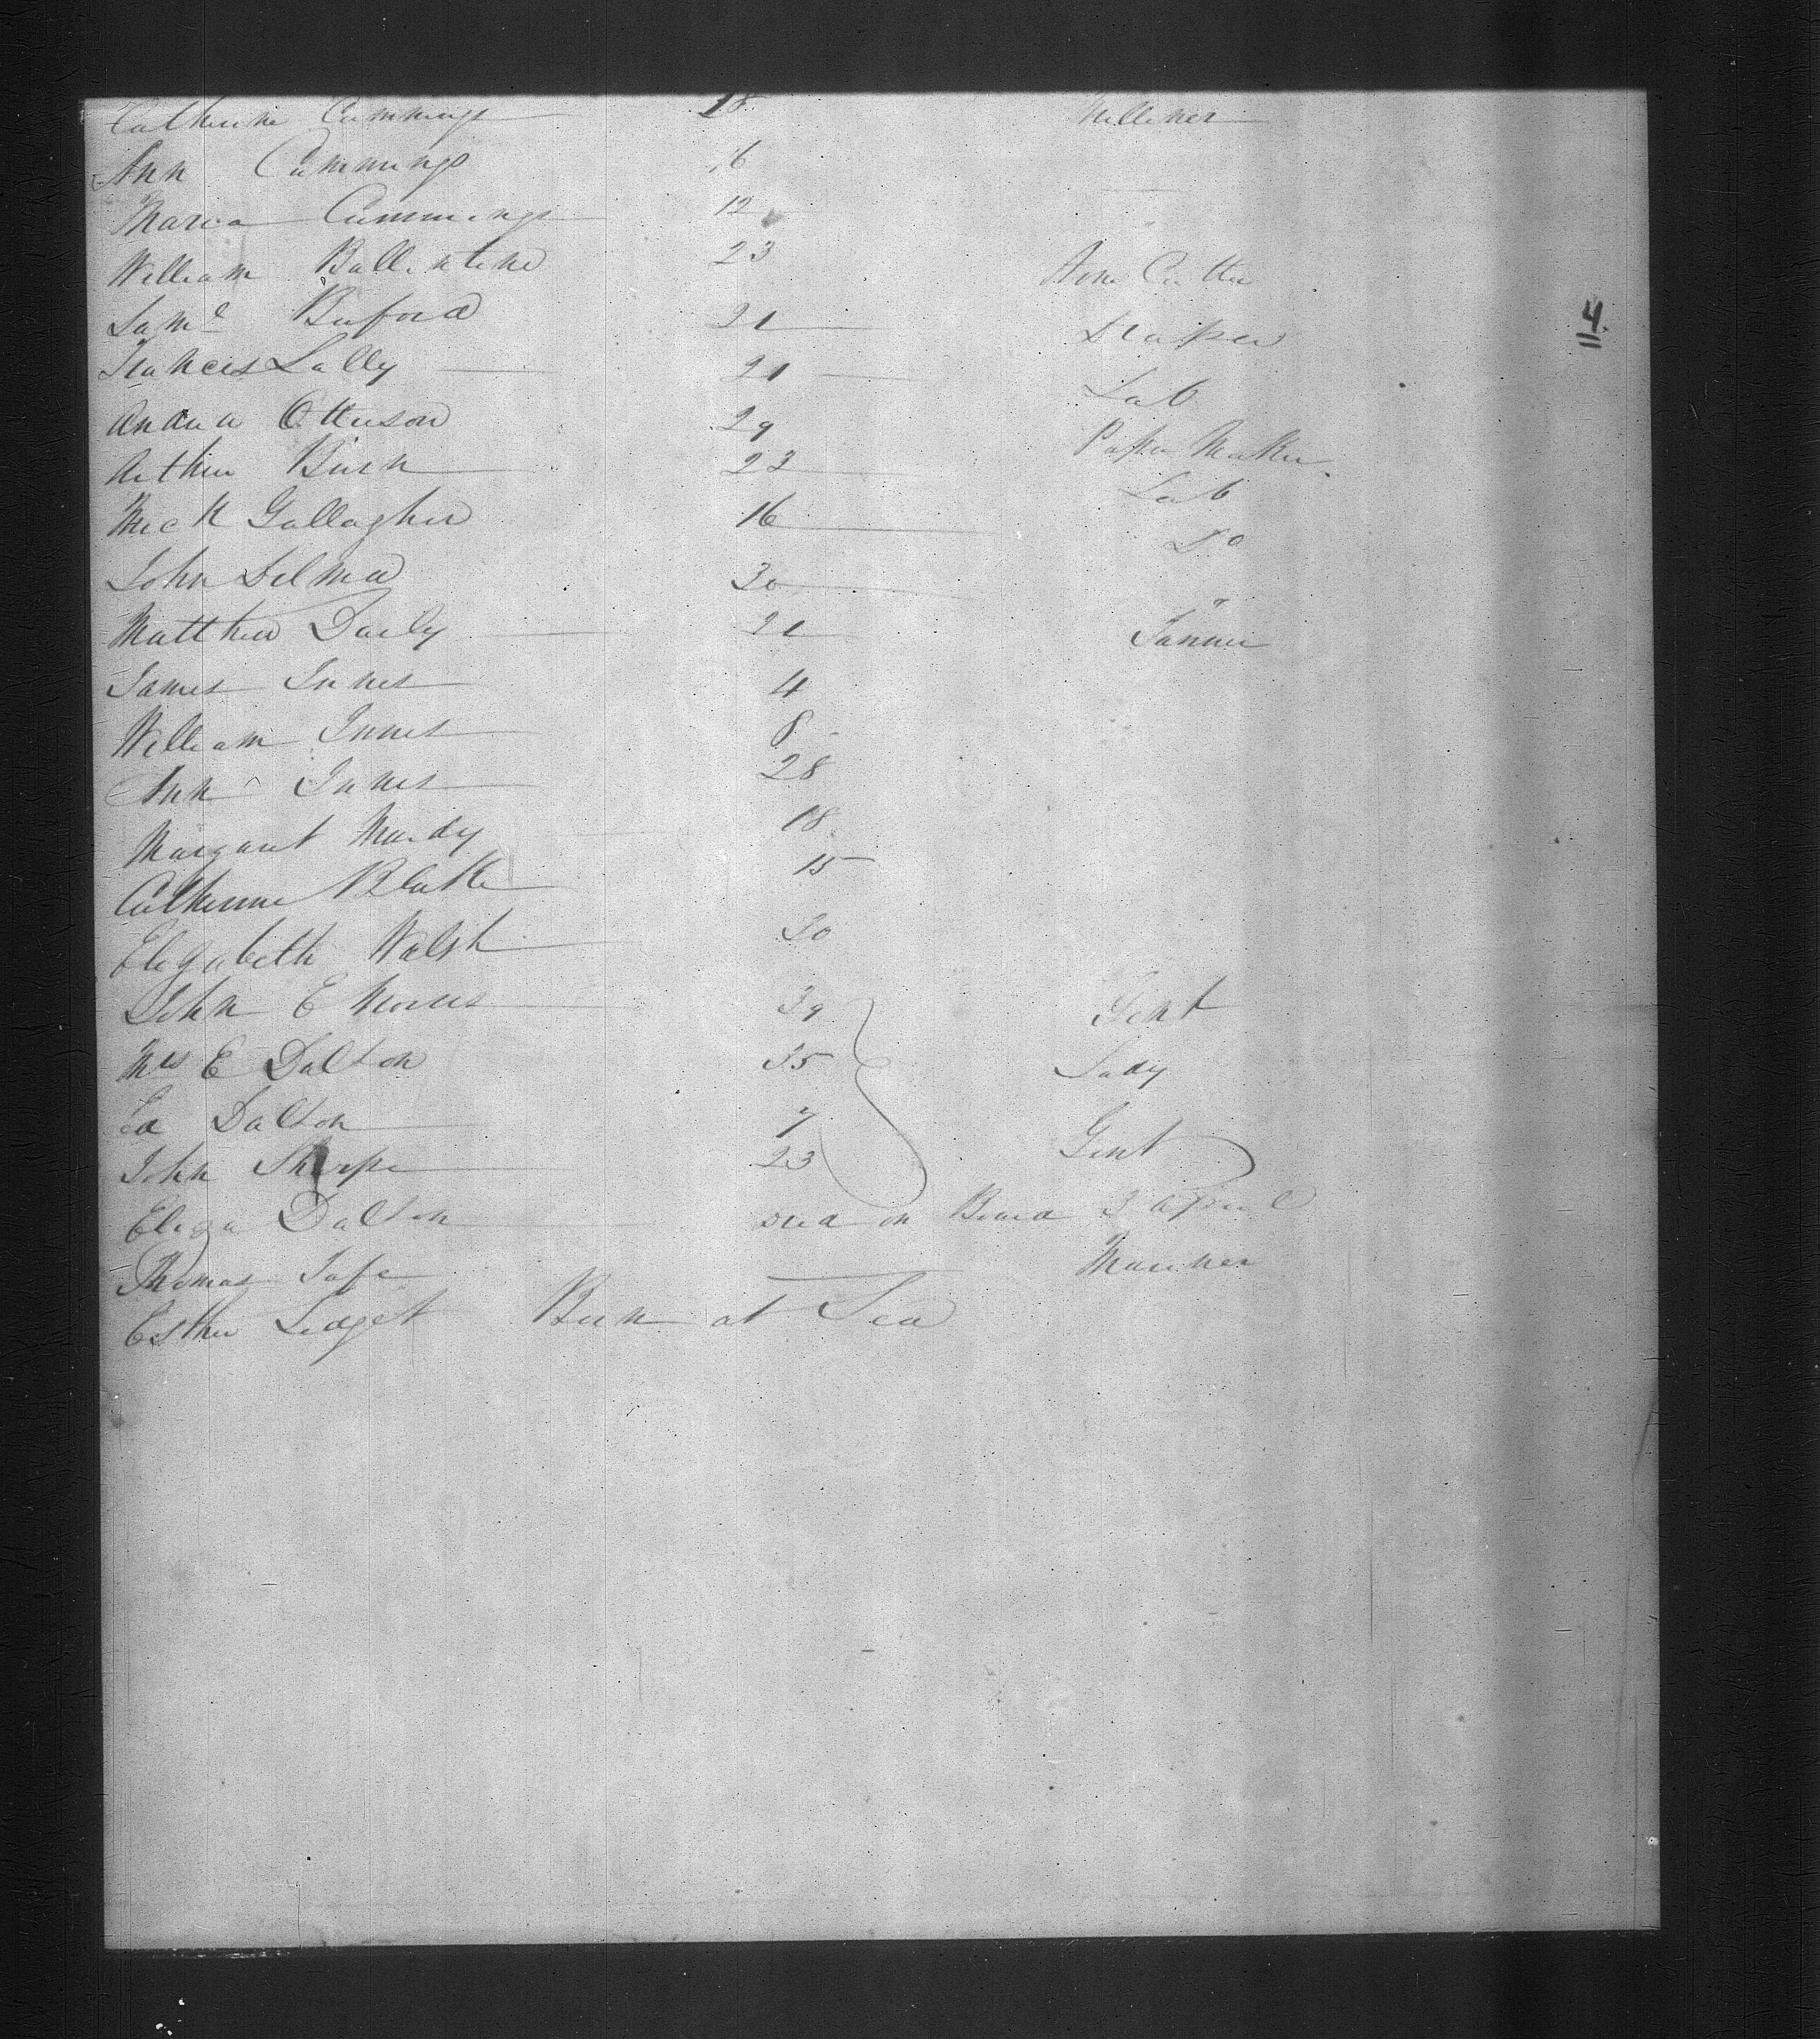 Catherine Cummings 18 Milliner
Ann Cummings 16
Maria Cummings 12
William Ballentine 23 Cutter
Saml Buford 21 Draper
Francis Lally 21 Lab
Andrew Otterson 29 Paper Maker
Arthur Burn 23 Lab
Mick Gallagher 16 Do
4
John Delmer 30 "
Matthew Daily 21 Tanner
James Innes 4
William Innes 8
Ann Innes 28
Margaret Mardy 18
Catherine Blake 15
Elizabeth Walsh 30
John E 39 Gent
Mrs E Dalton 35 Lady
Ed Dalton 7
John Sharpe 23 Gent
Eliza Dalton Died on Board 3 April
Thomas Tafe Mariner
Esther Ledget Born at Sea